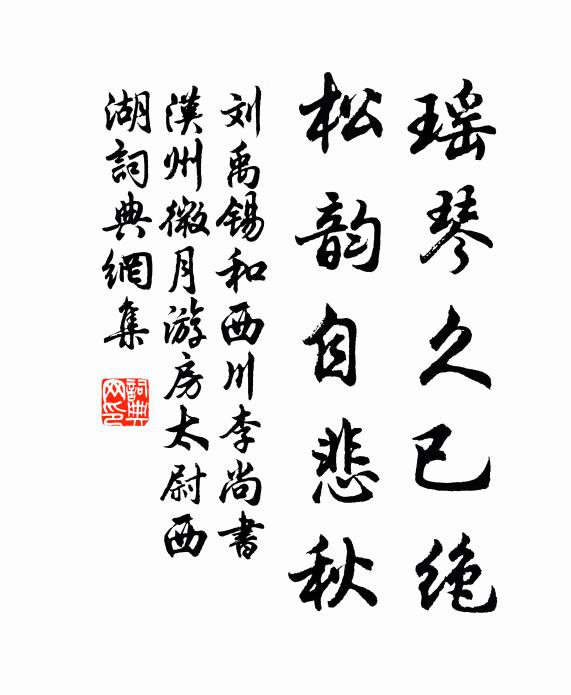 瑶琴久已绝
松韵自悲秋
刘禹锡和西川李尚书
漢州微月游房太尉西
湖詞典網集
詞典网印